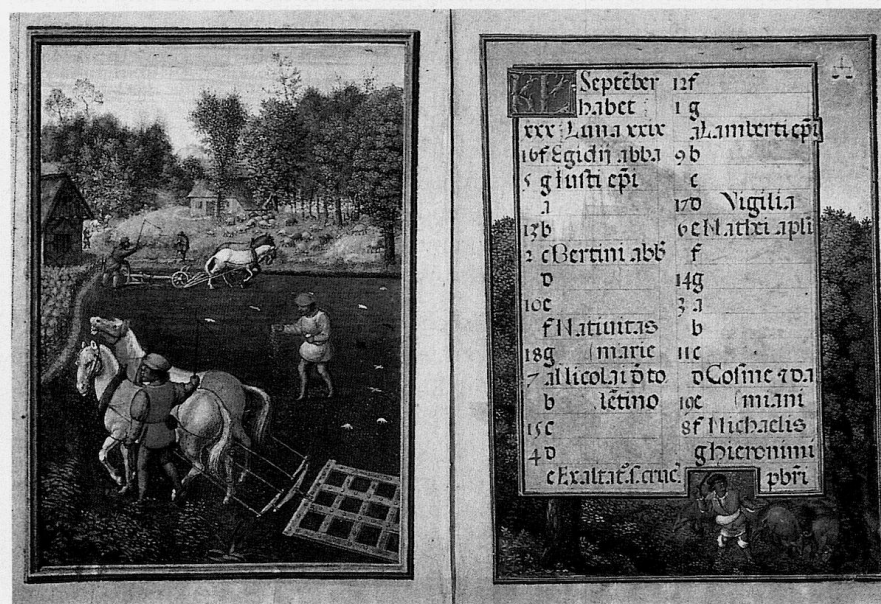 KL Septēber
habet
xxx Luna xxix
16 f Egidij abba
5 g Iusti epi
a
13 b
2 c Bertini abb
d
10 e
f Natiuitas
18 g marie
7 a Nicolai d to
b lētino
15 c
4 d
e Exaltat s. cruc
12 f
1 g
a Lamberti epi
9 b
c
17 d Vigilia
6 e Mathei apli
f
14 g
3 a
b
11 c
d Cosme 7 da
19 e miani
8 f Michaelis
g hieronimi
pbri